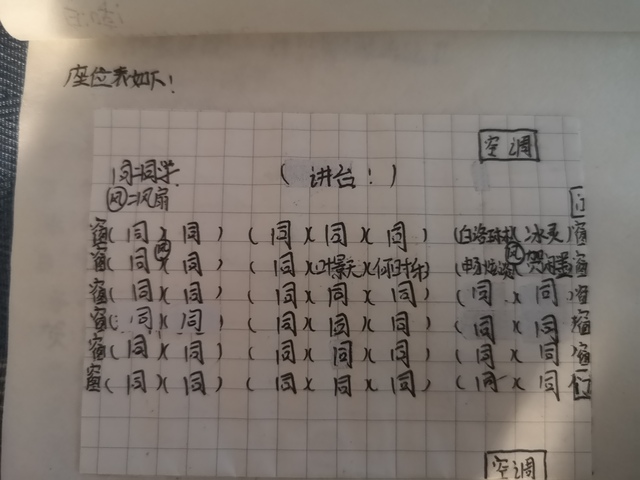 座位表如下!
空调
同=同学
(讲台!)
风=风扇
门
窗(同)(同) (同)(同)(同) (白洛 冰美)窗
风 风
窗(同)(同) (同)(叶景天)(何叶午) (申 )窗
窗(同)(同) (同)(同)(同) (同)(同)窗
窗(同)(同) (同)(同)(同) (同)(同)窗
窗(同)(同) (同)(同)(同) (同)(同)窗
窗(同)(同) (同)(同)(同) (同)(同)门
空调